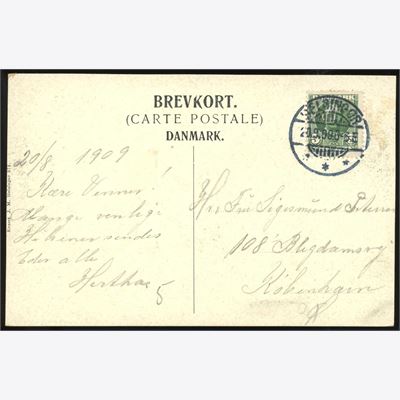 BREVKORT.
(CARTE POSTALE)
DANMARK.
HELSINGØR
20/8 1909
Kære Venner!
Mange venlige
Hilsener sendes
Eder alle
Hertha
Hr. Fru Sigismund Petersen
108 Blegdamsvej
København